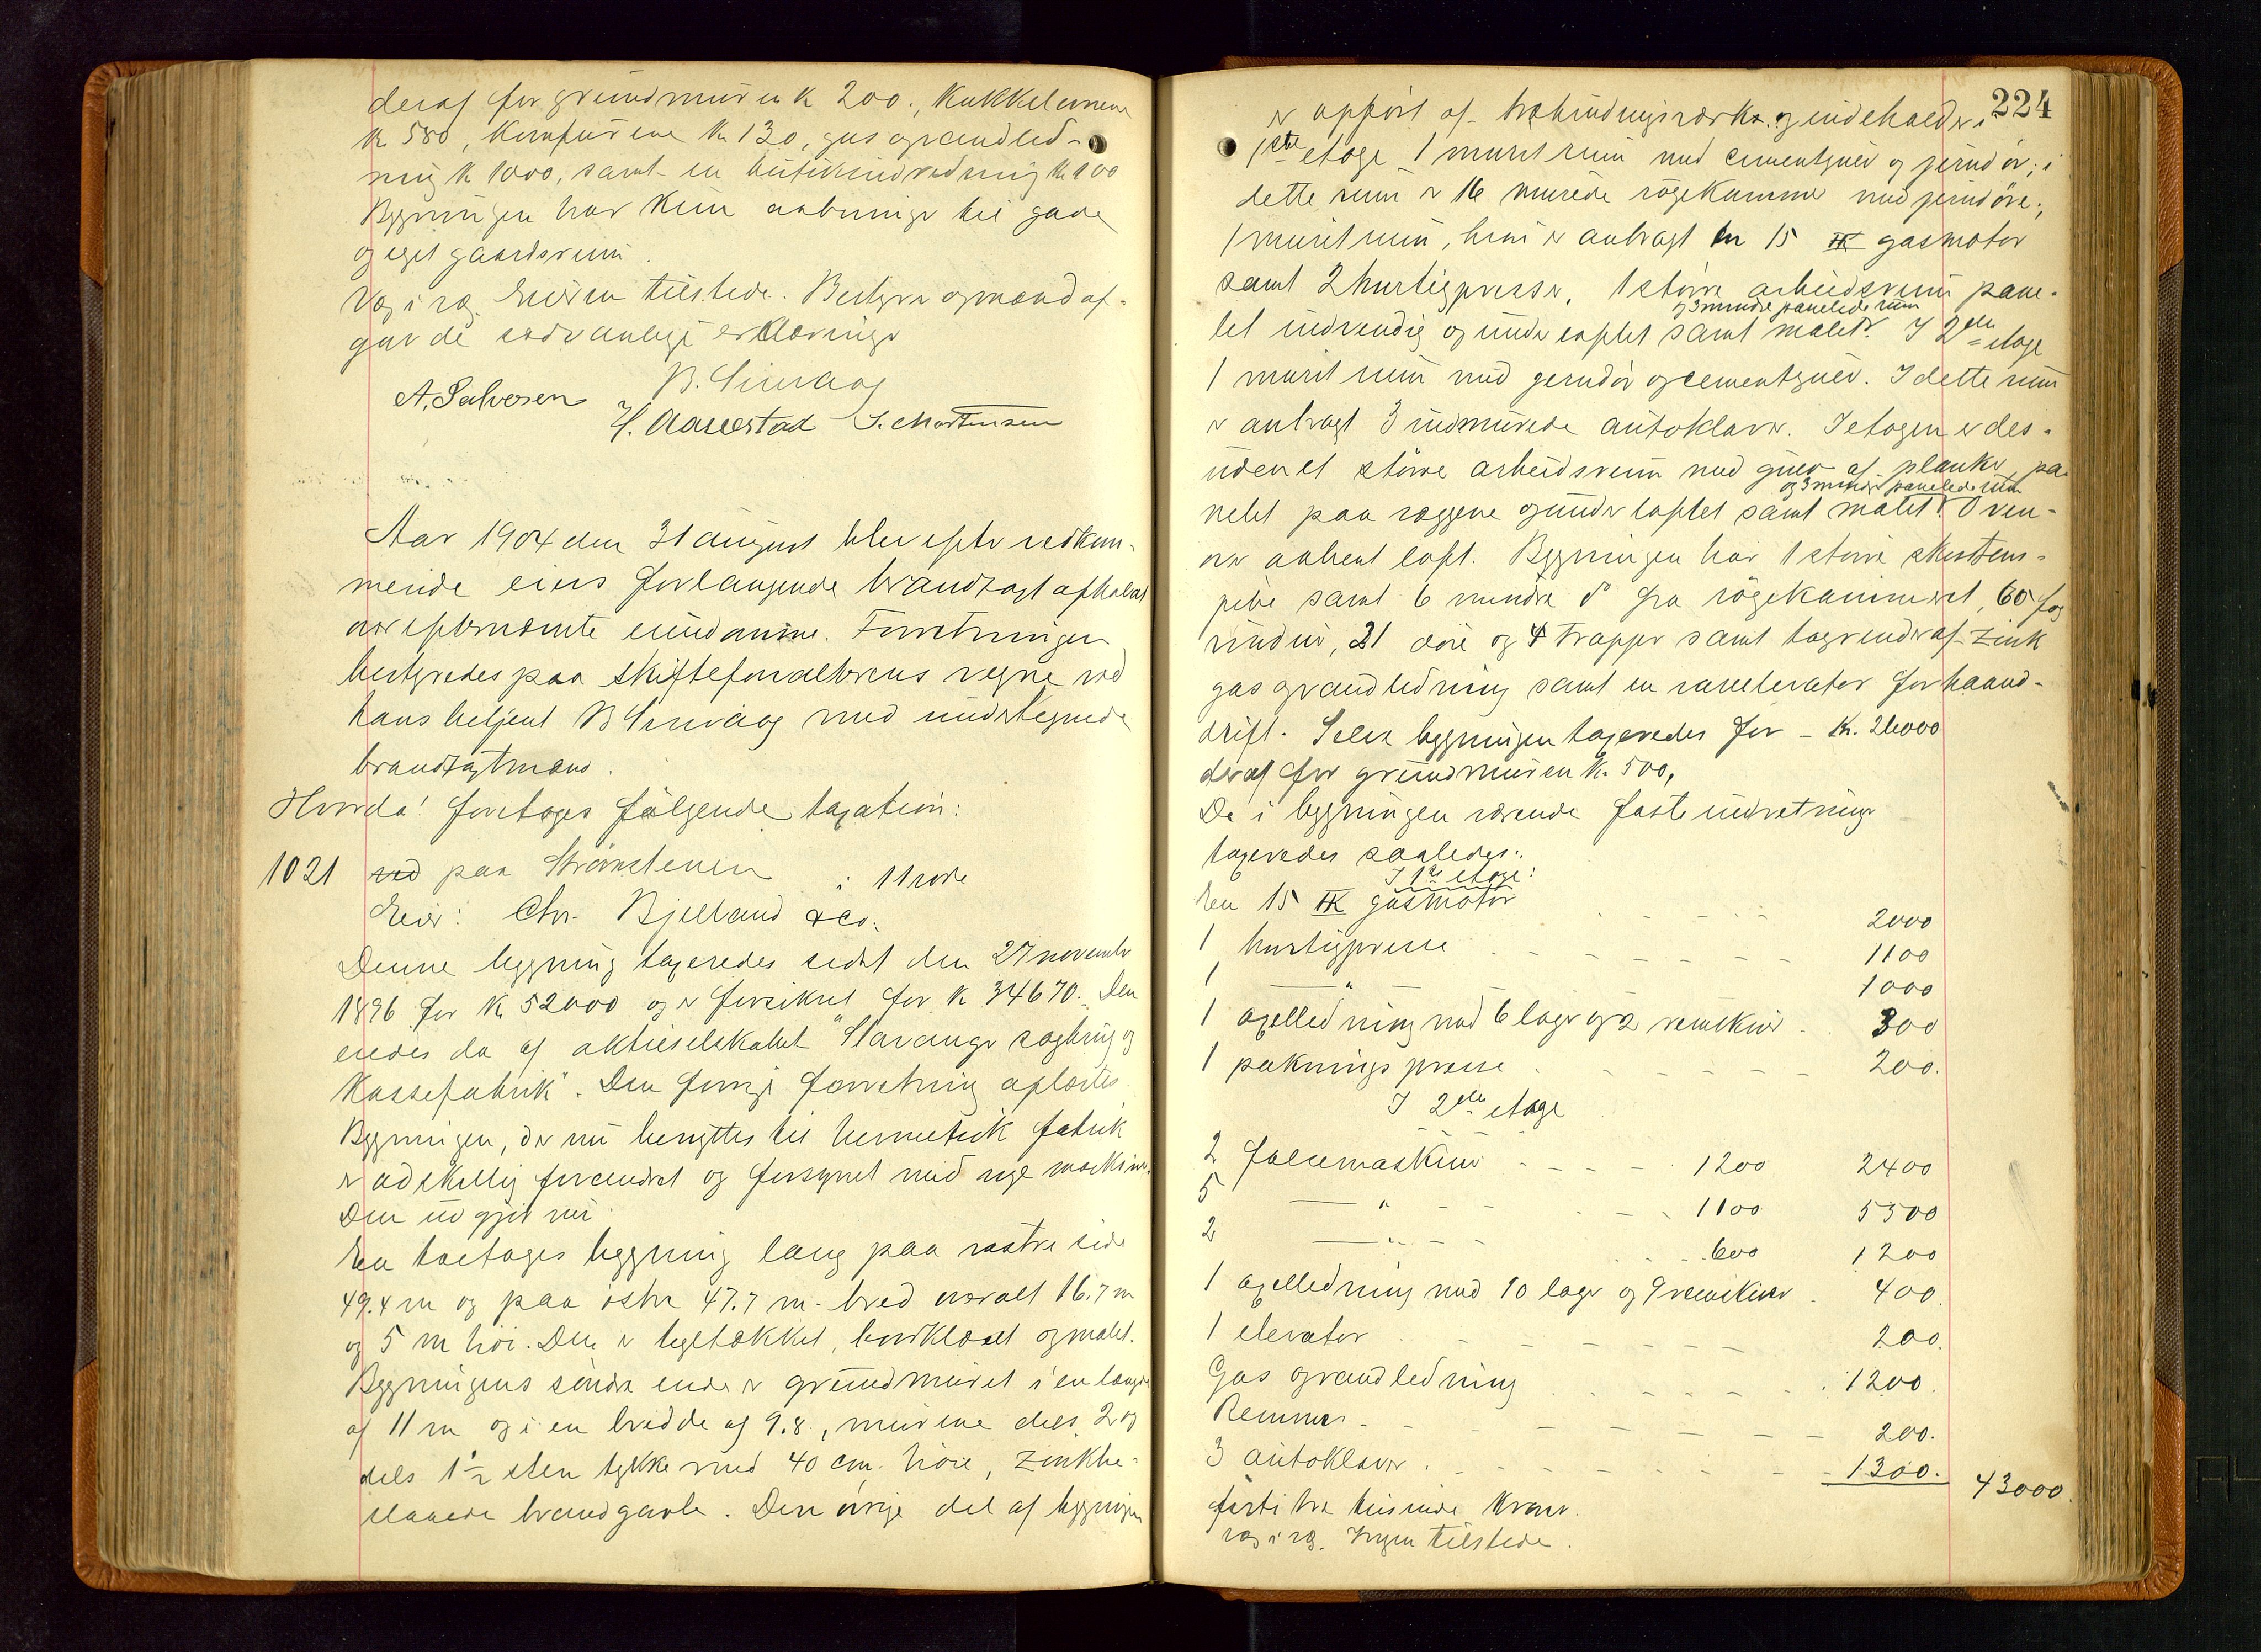 deraf for grundmuren K 200, Kakkelovnene
K 580, Komfurene K 130, gas og vandled-
ning K 1000, samt en butikindredning K 100
Bygningen har kun aabninger til gade
og eget gaardsrum.
Væg i væg. Eieren tilstede. Bestyrer og mænd af-
gav de sædvanlige erklæringer
A. Salvesen B. Sinvaag
H. Aarestad S. Mortensen
Aar 1904 den 31 august blev efter vedkom-
mende eiers forlangende brandtaxt afholdt
over efternævnte eiendomme. Forretningen
bestyredes paa skifteforvalterens vegne ved
hans betjent B Sinvaag med undertegnede
brandtaxtmænd.
Hvorda! foretoges følgende taxation:
1021 ved paa Strømstenen i 11 rode
Eier: Chr. Bjelland & Co.
Denne bygning taxeredes sidst den 27 november
1896 for K 52000 og er forsikret for K 34670. Den
eiedes da af aktieselskabet "Stavanger sagbrug og
Kassefabrik". Den forrige forretning oplæstes.
Bygningen, der nu benyttes til hermetik fabrik
er adskillig forandret og forsynet med nye maskiner.
Den udgjør nu:
En toetages bygning lang paa vestre side
49.4 m og paa østre 47.7 m. bred overalt 16.7 m
og 5 m høi. Den er tegltækket, bordklædt og malet.
Bygningens søndre ende er grundmuret i en længde
af 11 m og i en bredde af 9.8., murene dels 2 og
dels 1½ sten tykke med 40 cm. høie, zinkbe-
slaaede brandgavle. Den øvrige del af bygningen
224
er opført af træbindingsværk og indeholder i
1ste etage 1 muret rum med cementgulv og jerndør; i
dette rum er 16 murede røgekammer med jerndøre;
1 muret rum, hvori er anbragt en 15 HK gasmotor
samt 2 hurtigpresser, 1 større arbeidsrum pane-
og 3 mindre panelede rum
let indvendig og under loftet samt malet. I 2den etage
1 muret rum med jerndør og cementgulv. I dette rum
er anbragt 3 indmurede autoklaver. I etagen er des-
uden et større arbeidsrum med gulv af planker, pa-
og 3 mindre panelede rum
nelet paa væggene og under loftet samt malet. Oven-
over aabent loft. Bygningen har 1 større skorstens-
pibe samt 6 mindre do fra røgekammeret, 60 fag
vinduer, 21 døre og 4 trapper samt tagrender af zink
gas og vandledning samt en vareelevator for haand-
drift. Selve bygningen taxeredes for - Kr. 26000
deraf for grundmuren K. 500,
De i bygningen værende faste indretninger
taxeredes saaledes:
I 1ste etage:
En 15 HK gasmotor 2000
1 hurtigpresse 1100
1 —"— 1000
1 axelledning med 6 lager og 2 remskiver 300
1 pakningspresse 200.
I 2den etage
2 falsemaskiner 1200 2400
5 —"— 1100 5500
2 —"— 600 1200
1 axelledning med 10 lager og 9 remskiver 400.
1 elevator 200.
Gas og vandledning 1200.
Remmer 200.
3 autoklaver 1300. 43000.
førti tre tusinde Kroner.
væg i væg. Ingen tilstede.